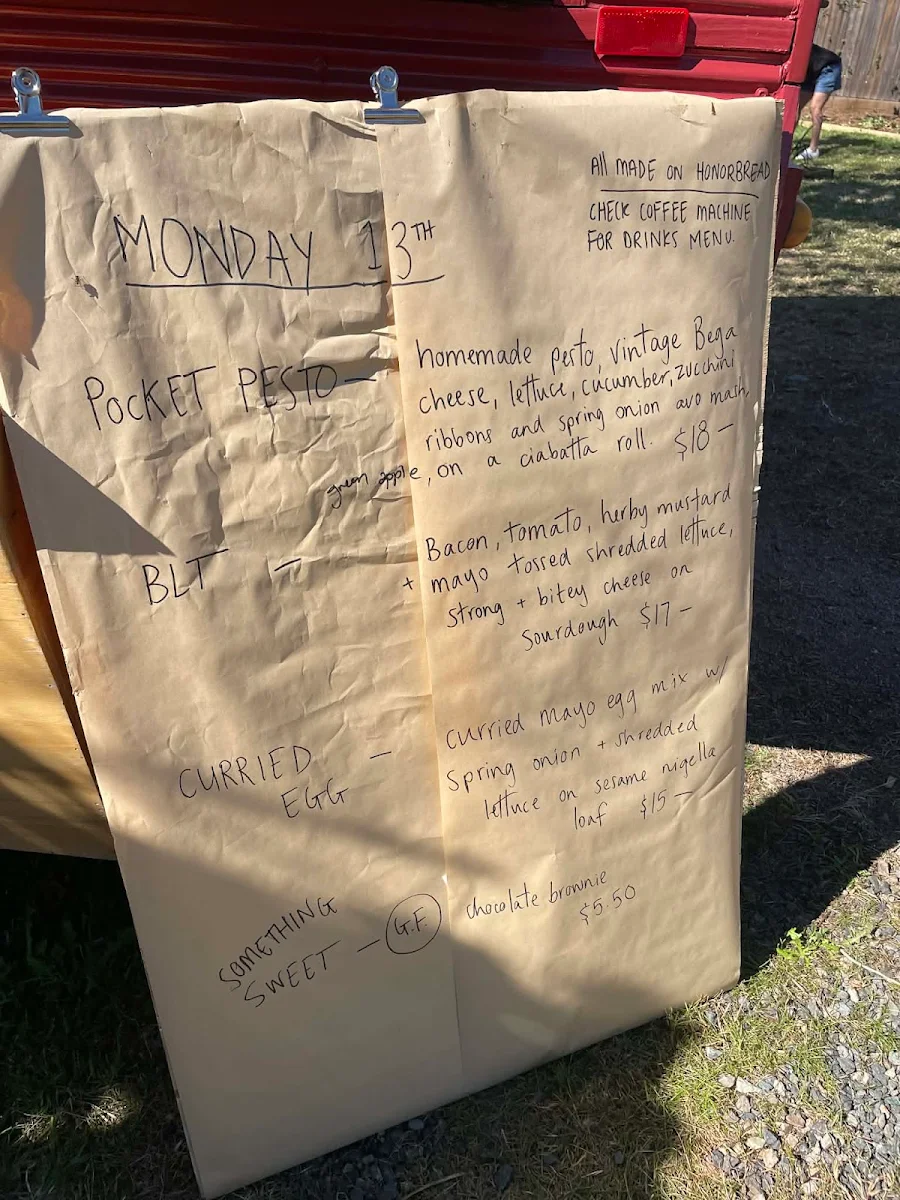 All MADE ON HONORBREAD
CHECK COFFEE MACHINE
FOR DRINKS MENU.
MONDAY 13TH
POCKET PESTO —
homemade pesto, vintage Bega
cheese, lettuce, cucumber, zucchini
ribbons and spring onion avo mash,
green apple, on a ciabatta roll. $18 —
BLT —
Bacon, tomato, herby mustard
+ mayo tossed shredded lettuce,
strong + bitey cheese on
Sourdough $17 —
CURRIED —
EGG
curried mayo egg mix w/
spring onion + shredded
lettuce on sesame nigella
loaf $15 —
SOMETHING
SWEET — G.F.
chocolate brownie
$5.50